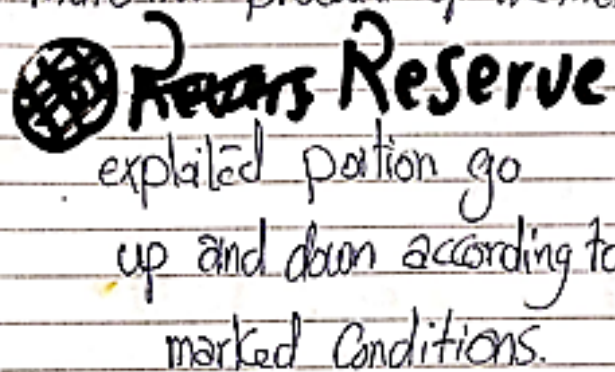 Reserve
explaited portion go
up and down according to
marked Conditions.